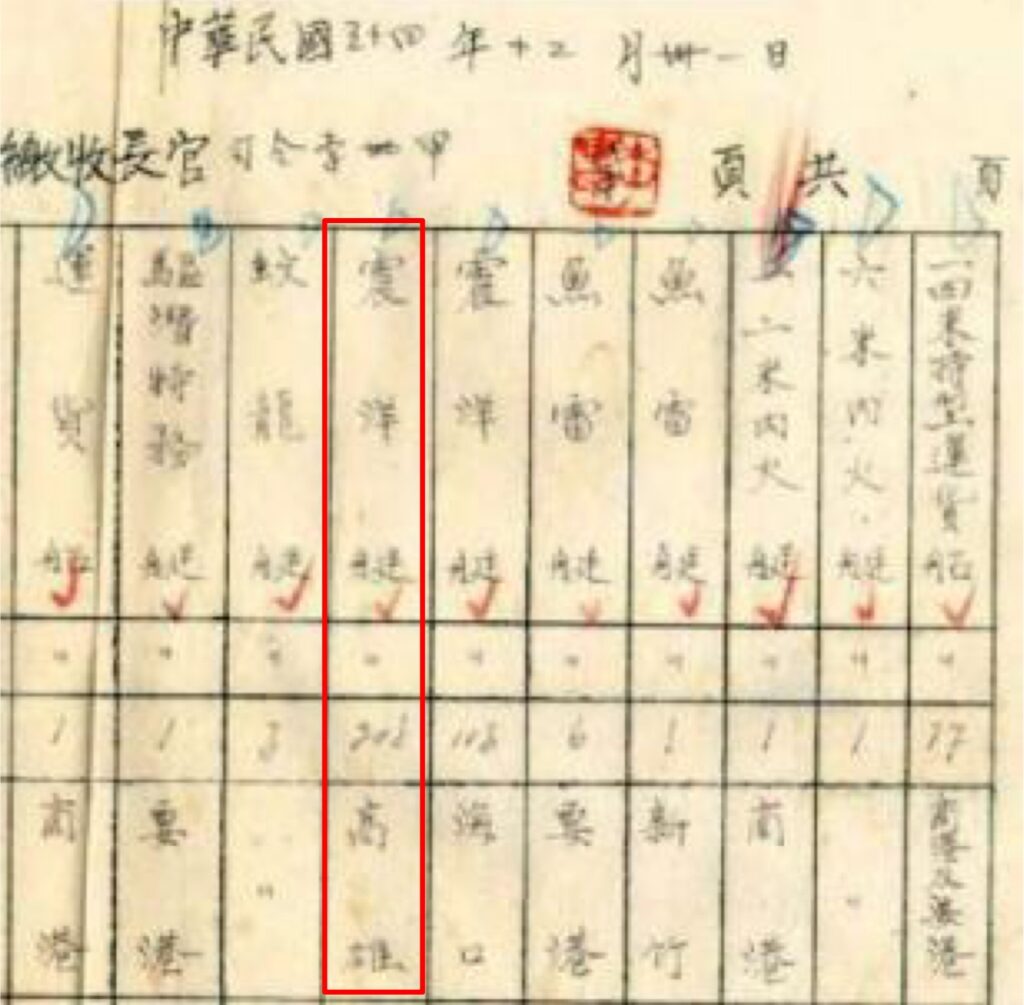 中華民國三十四年十二月卅一日
繳收長官司令李世甲 頁共 頁
一四米特型運貨船 〃 高港及要港
六米內火艇 〃 1 〃
一二米內火艇 〃 1 商港
魚雷艇 〃 1 新竹
魚雷艇 〃 6 要港
震洋艇 〃 海口
震洋艇 〃 高雄
蛟龍艇 〃 〃
驅潛特務艇 〃 1 要港
運貨船 〃 1 商港